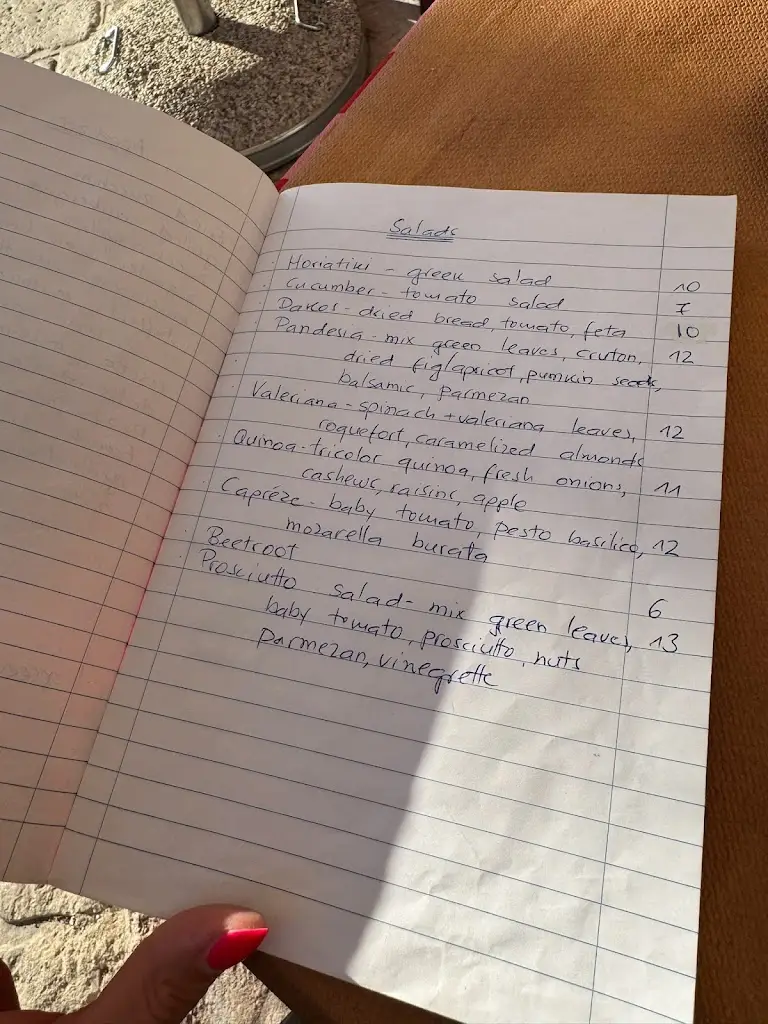 Salads
Horiatiki - green salad 10
Cucumber - tomato salad 7
Dakos - dried bread, tomato, feta 10
Pandesia - mix green leaves, cruton, 12
dried fig/apricot, pumkin seeds,
balsamic, parmezan
Valeriana - spinach + valeriana leaves, 12
roquefort, caramelized almonds
Quinoa - tricolor quinoa, fresh onions, 11
cashews, raisins, apple
Capréze - baby tomato, pesto basilico, 12
mozarella burata
Beetroot 6
Prosciutto salad - mix green leaves, 13
baby tomato, prosciutto, nuts
parmezan, vinegrette